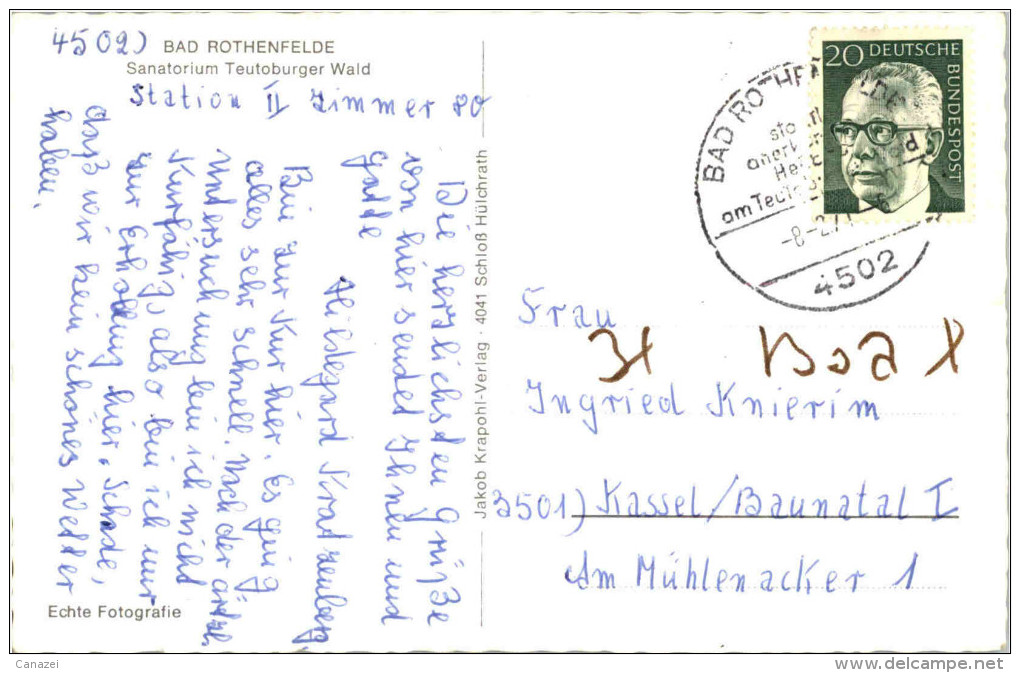 4502)
BAD ROTHENFELDE
Sanatorium Teutoburger Wald
Station II Zimmer 80
Die herzlichsten Grüße
von hier sendet Ihnen und
Gatte
Hildegard
Bin zur Kur hier. Es ging
alles sehr schnell. Nach der ärztl.
Untersuchung bin ich nicht
Kurfähig, also bin ich nur
zur Erholung hier. Schade,
daß wir kein schönes Wetter
haben.
Echte Fotografie
Jakob Krapohl-Verlag · 4041 Schloß Hülchrath
20 DEUTSCHE
BUNDESPOST
BAD ROTHENFELDE
am Teutobu
-8-2.71
4502
Frau
Ingried Knierim
3501) Kassel/Baunatal I
Am Mühlenacker 1
Canazei
www.delcampe.net